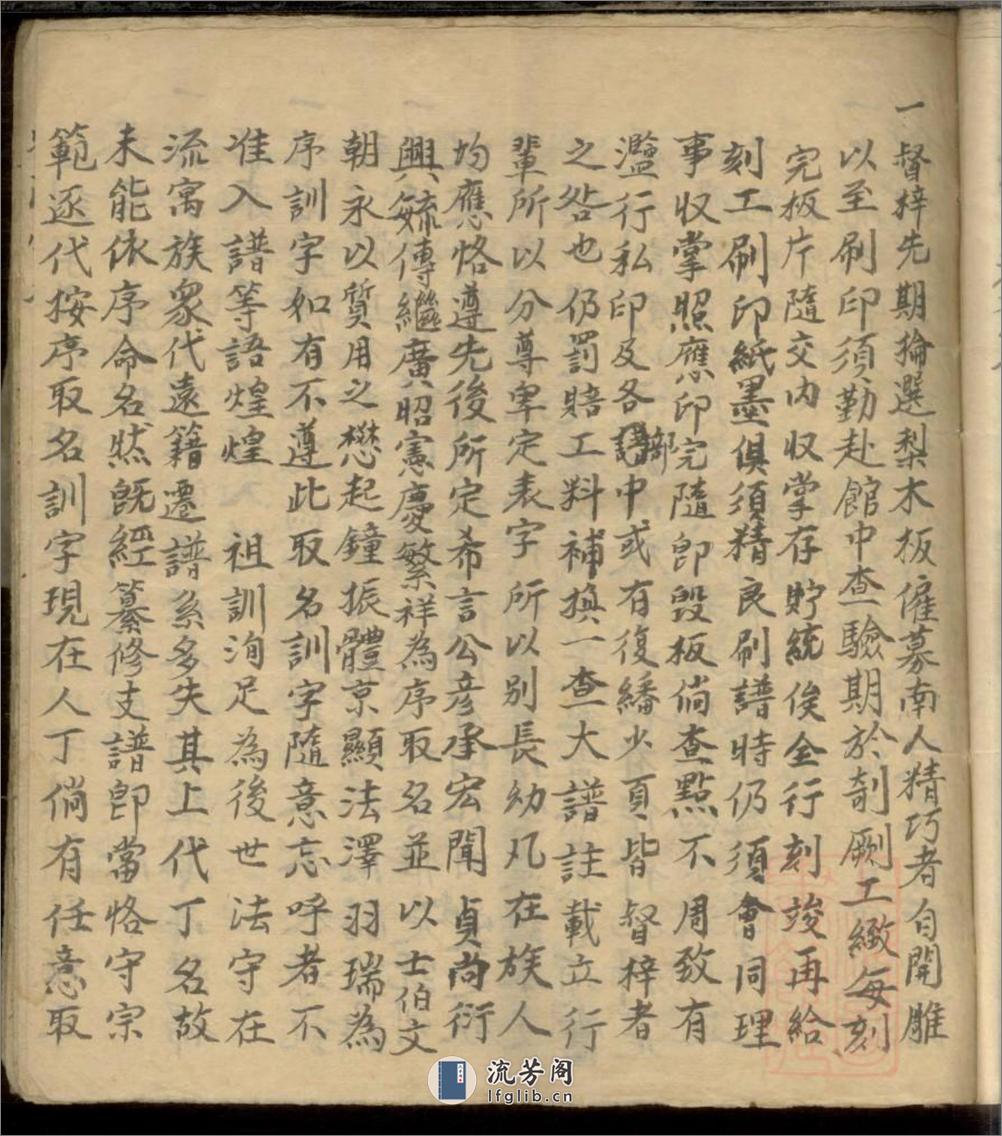 一督梓先期掄選梨木板僱募南人精巧者自開雕
以至刷印須勤赴館中查驗期於剞劂工緻每刻
完板片隨交內收掌存貯統俟全行刻竣再給
刻工刷印紙墨俱須精良刷譜時仍須會同理
事收掌照應印完隨即毀板倘查點不周致有
濫行私印及各部譜中或有復繙少頁皆督梓者
之咎也仍罰賠工料補換一查大譜註載立行
輩所以分尊卑定表字所以別長幼凡在族人
均應恪遵先後所定希言公彥承宏聞貞尚衍
興毓傳繼廣昭憲慶繁祥為序取名並以士伯文
朝永以質用之懋起鐘振體京顯法澤羽瑞為
序訓字如有不遵此取名訓字隨意忘呼者不
准入譜等語煌煌 祖訓洵足為後世法守在
流寓族眾代遠籍遷譜系多失其上代丁名故
未能依序命名然既經纂修支譜即當恪守宗
範逐代按序取名訓字現在人丁倘有任意取
流芳阁
lfglib.cn